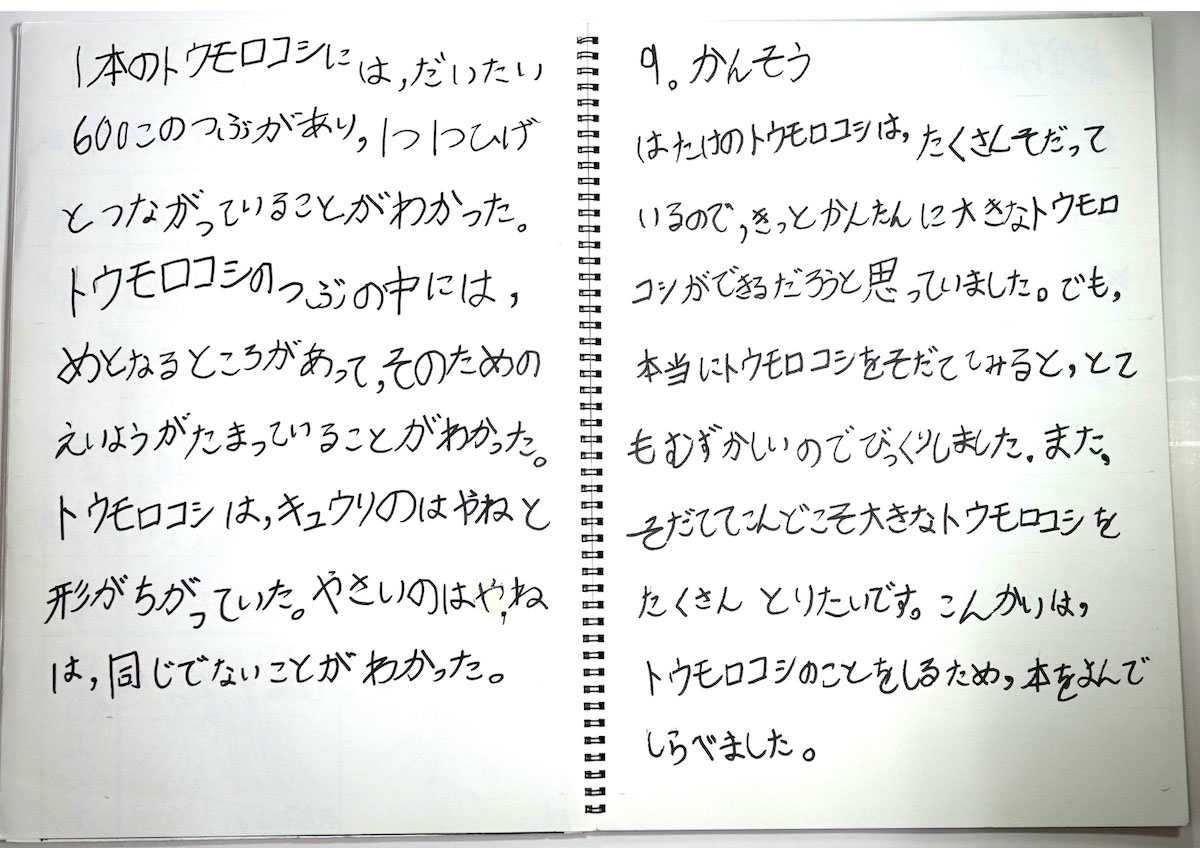 1本のトウモロコシには,だいたい
600このつぶがあり,1つ1つひげ
とつながっていることがわかった。
トウモロコシのつぶの中には,
めとなるところがあって,そのための
えいようがたまっていることがわかった。
トウモロコシは,キュウリのはやねと
形がちがっていた。やさいのはや,ね
は,同じでないことがわかった。
9。かんそう
はたけのトウモロコシは,たくさんそだって
いるので,きっとかんたんに大きなトウモロ
コシができるだろうと思っていました。でも,
本当にトウモロコシをそだててみると,とて
もむずかしいのでびっくりしました.また,
そだててこんどこそ大きなトウモロコシを
たくさんとりたいです。こんかいは,
トウモロコシのことをしるため,本をよんで
しらべました。